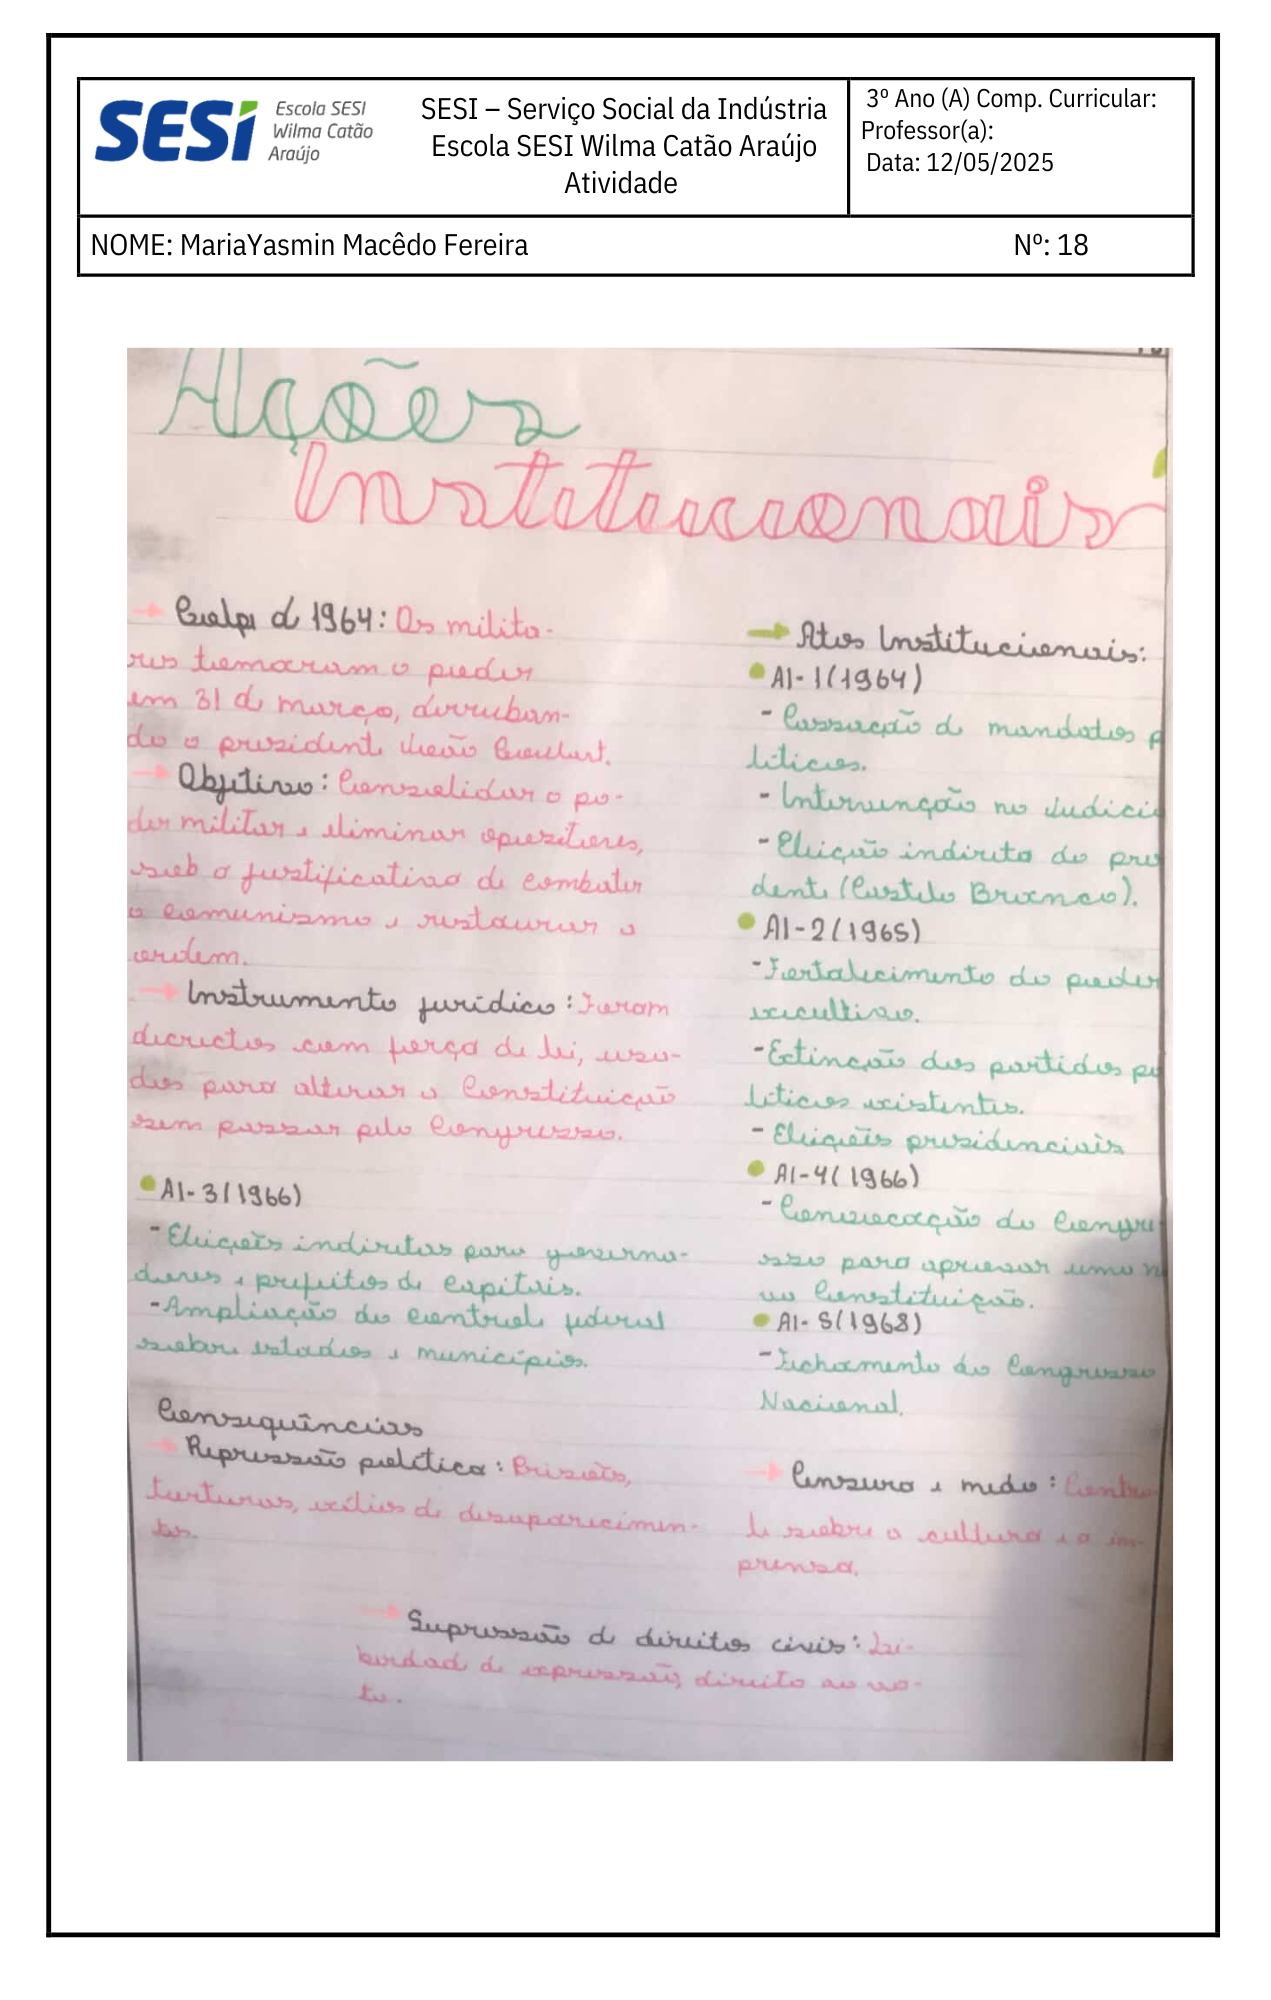 SESI
Escola SESI
Wilma Catão
Araújo
SESI – Serviço Social da Indústria
Escola SESI Wilma Catão Araújo
Atividade
3º Ano (A) Comp. Curricular:
Professor(a):
Data: 12/05/2025
NOME: MariaYasmin Macêdo Fereira Nº: 18
Ações
Institucionais
→ Golpe d 1964: Os milita-
res tomaram o poder
em 31 de março, derruban-
do o presidente João Goulart.
→ Objetivo: Consolidar o po-
der militar e eliminar opositores,
sob a justificativa de combater
o comunismo e restaurar a
ordem.
→ Instrumento jurídico: Foram
decretos com força de lei, usa-
dos para alterar a Constituição
sem passar pelo Congresso.
• AI-3(1966)
- Eleições indiretas para governa-
dores e prefeitos de capitais.
- Ampliação do controle federal
sobre estados e municípios.
→ Atos Institucionais:
• AI-1(1964)
- Cassação de mandatos p
líticos.
- Intervenção no Judiciá
- Eleição indireta do pre
dente (Castelo Branco).
• AI-2(1965)
- Fortalecimento do poder
executivo.
- Extinção dos partidos po
líticos existentes.
- Eleições presidenciais
• AI-4(1966)
- Convocação do Congre
sso para aprovar uma n
va Constituição.
• AI-5(1968)
- Fechamento do Congresso
Nacional.
Consequências
→ Repressão política: Prisões,
torturas, exílios de desaparecimen-
tos.
→ Censura e medo: Contro-
le sobre a cultura e a im-
prensa.
→ Supressão de direitos civis: Li-
berdade de expressão, direito ao vo-
to.